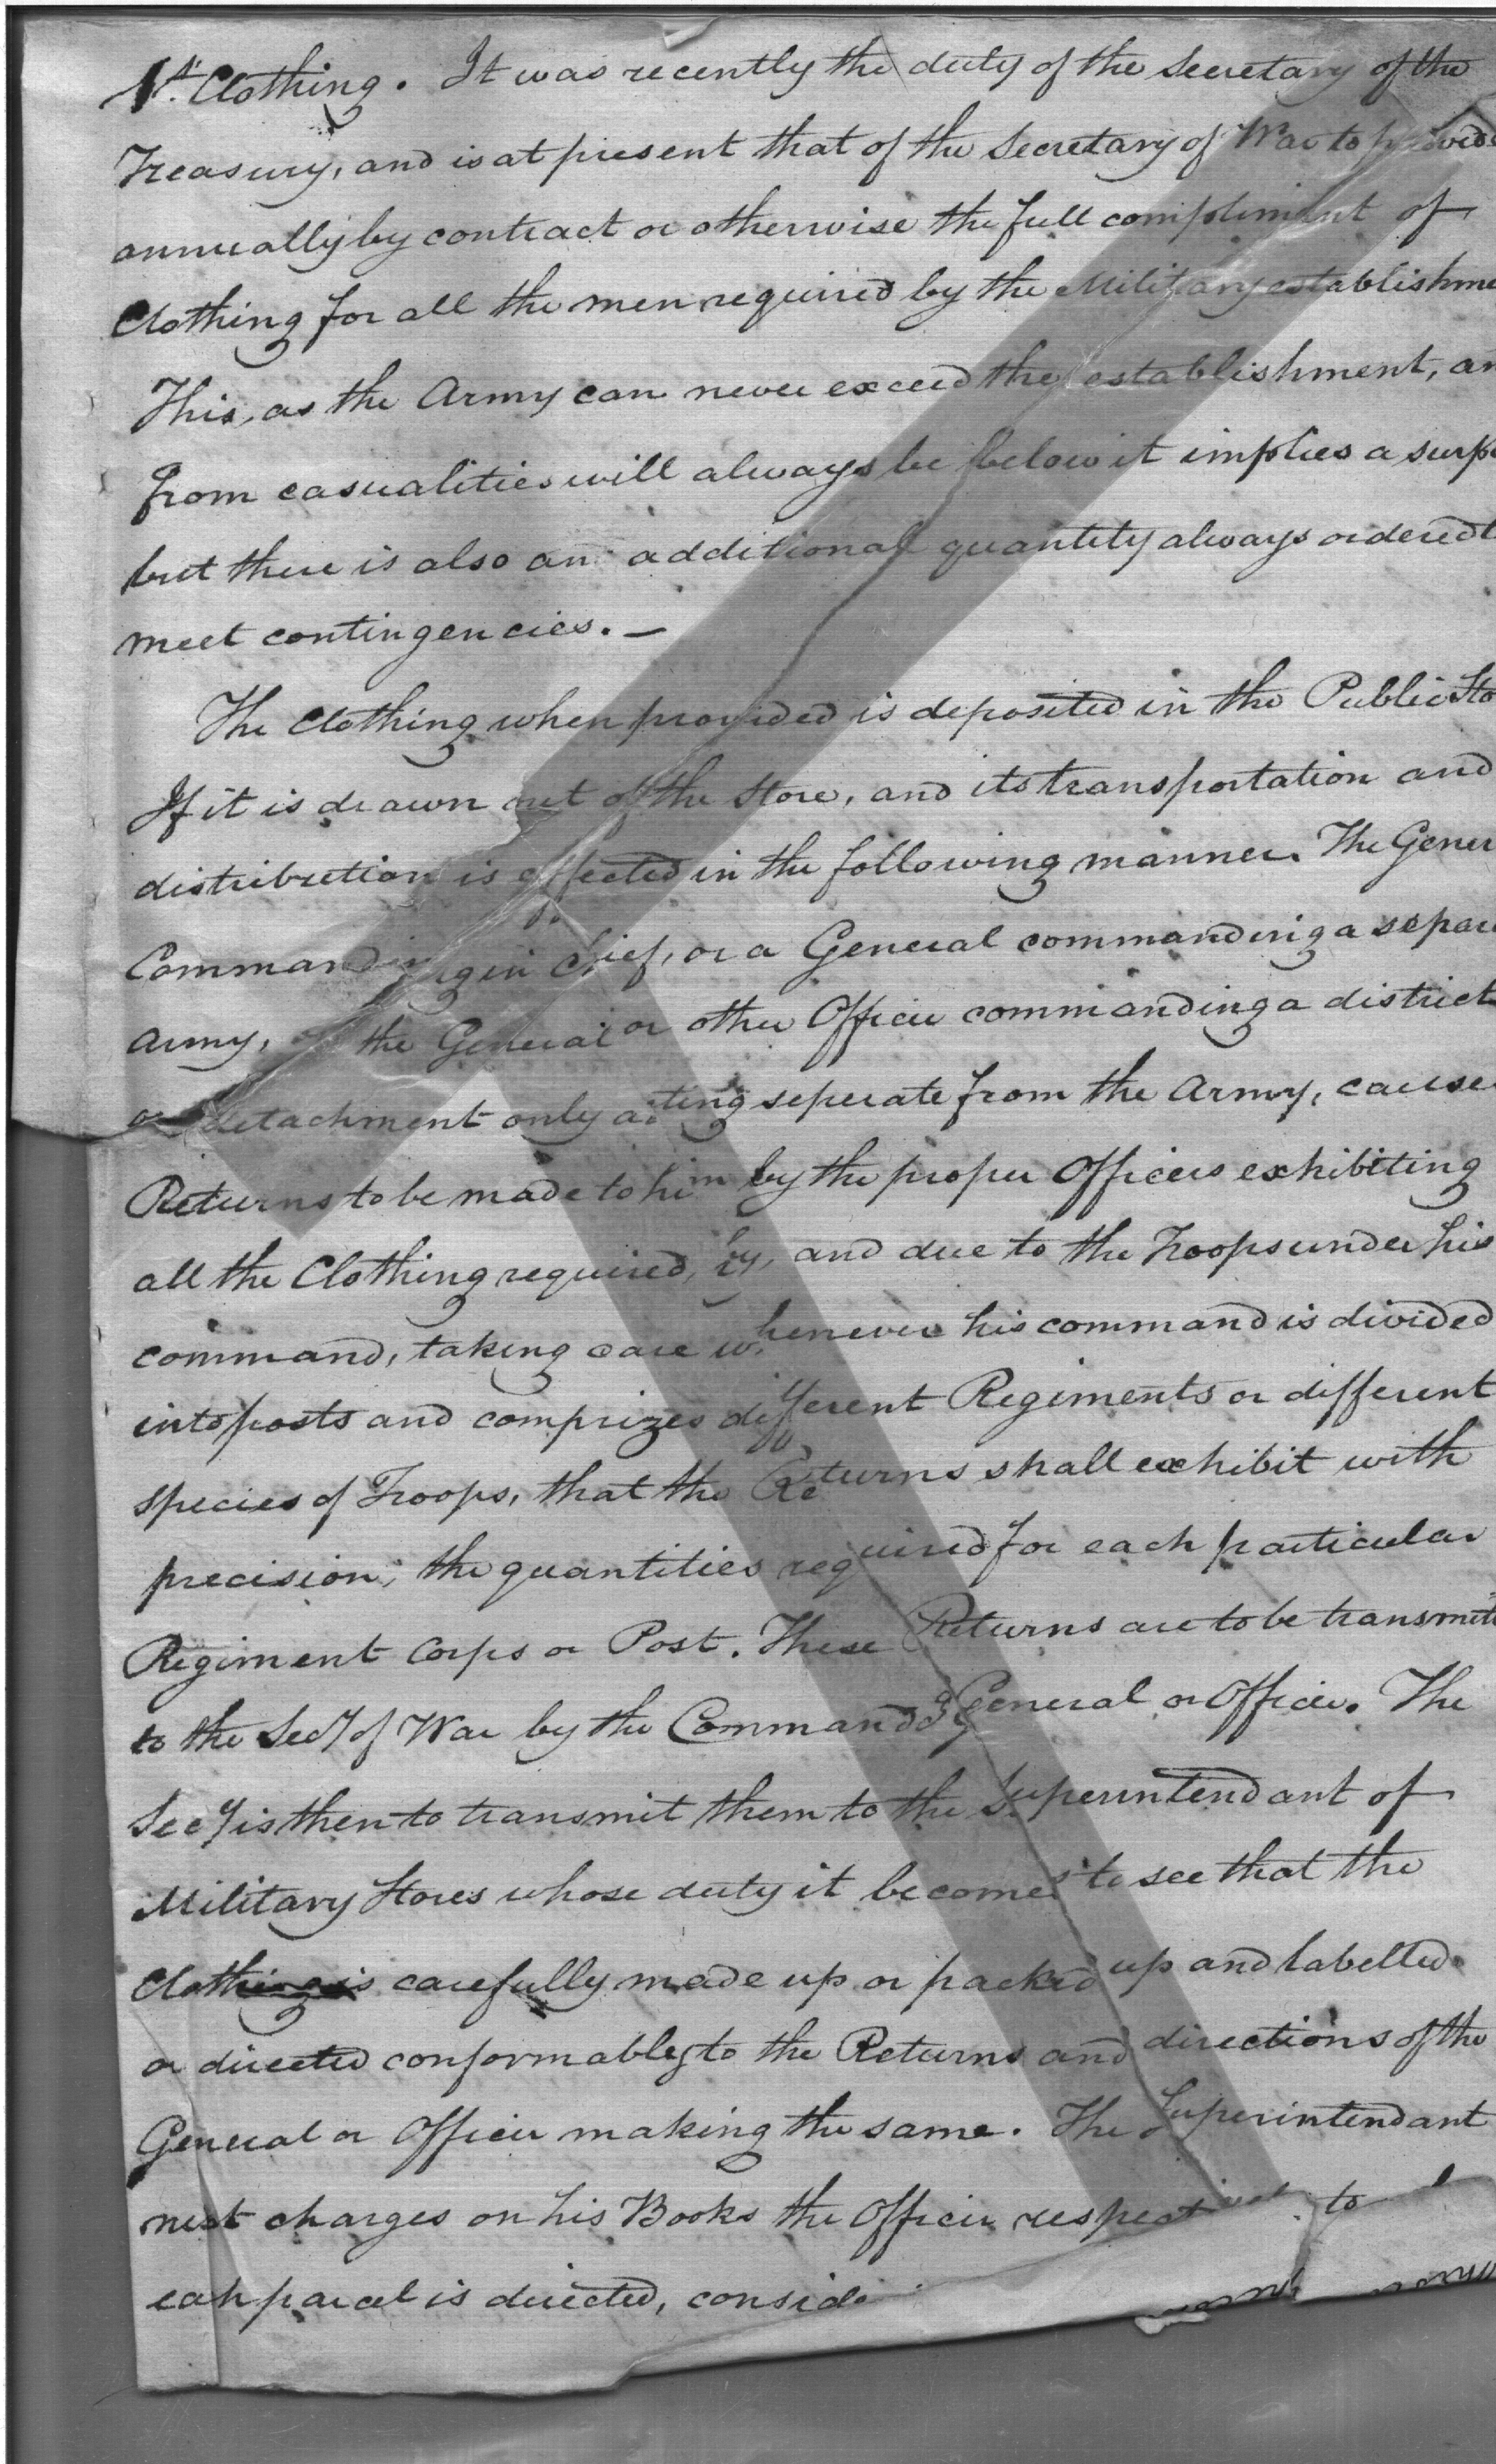 1st. Clothing. It was recently the duty of the Secretary of the
Treasury, and is at present that of the Secretary of War to provide
annually by contract or otherwise the full compliment of
Clothing for all the men required by the Military establishme
This, as the Army can never exceed the establishment, an
from casualities will always be below it implies a surp
but there is also an additional quantity always ordered t
meet contingencies. —
The Clothing when provided is deposited in the Public Sto
If it is drawn out of the Store, and its transportation and
distribution is effected in the following manner. The Gener
Commanding in Chief, or a General commanding a separ
Army, or the General or other Officer commanding a district
or detachment only acting seperate from the Army, cause
Returns to be made to him by the proper Officers exhibiting
all the Clothing required, by, and due to the Troops under his
command, taking care whenever his command is divided
into posts and comprizes different Regiments or different
species of Troops, that the Returns shall exhibit with
precision, the quantities required for each particular
Regiment Corps or Post. These Returns are to be transmitt
to the Secy of War by the Commandg General or Officer. The
Secy is then to transmit them to the Superintendant of
Military Stores whose duty it becomes to see that the
Clothing is carefully made up or packed up and labelled
or directed conformably to the Returns and directions of the
General or Officer making the same. The Superintendant
next charges on his Books the Officer to
each parcel is directed,